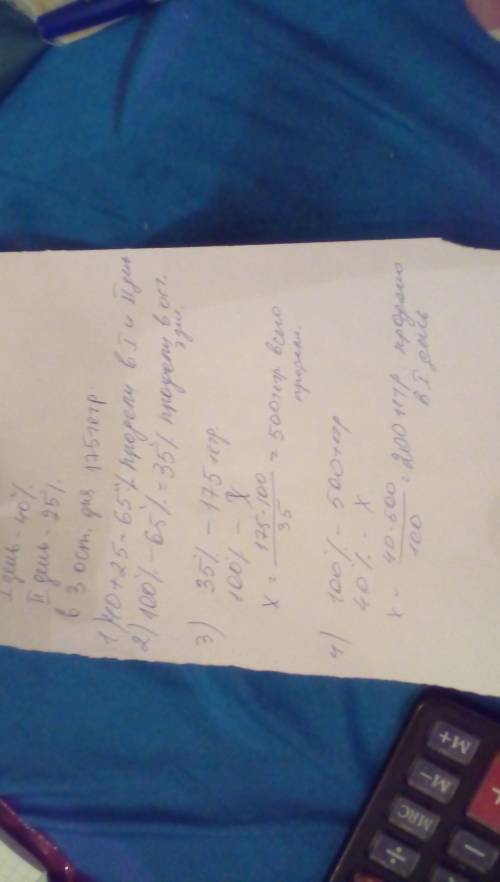 I день - 40%
II день - 25%
в 3 ост. дня 175 тетр.
1) 40+25=65% продали в I и II день
2) 100% - 65% = 35% продали в ост.
3 дня.
3) 35% - 175 тетр.
100% - X
X = 175·100 / 35 = 500 тетр всего
продали.
4) 100% - 500 тетр
40% - X
X = 40·500 / 100 = 200 тетр продано
в I день
M+
M-
MRC
÷
-
+